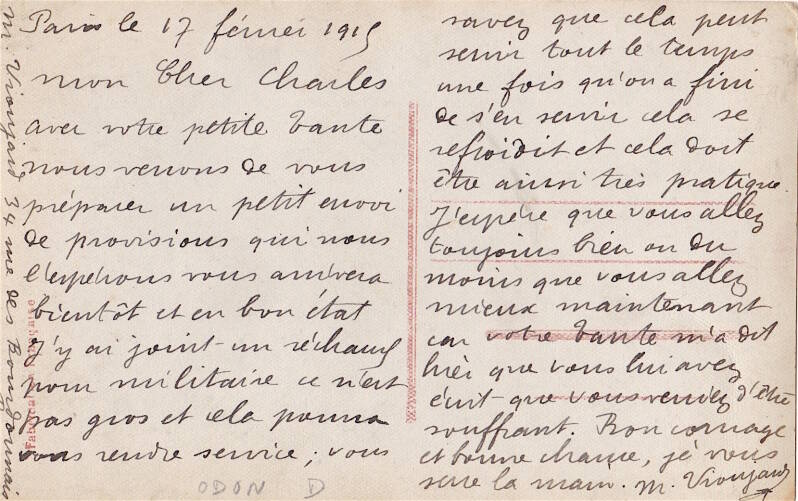 Paris le 17 février 1915
Mon Cher Charles
avec votre petite tante
nous venons de vous
préparer un petit envoi
de provisions qui nous
l'espérons vous arrivera
bientôt et en bon état
J'y ai joint un réchaud
pour militaire ce n'est
pas gros et cela pourra
vous rendre service; vous
savez que cela peut
servir tout le temps
une fois qu'on a fini
de s'en servir cela se
refroidit et cela doit
être ainsi très pratique.
J'espère que vous allez
toujours bien ou du
moins que vous allez
mieux maintenant
car votre tante m'a dit
hier que vous lui avez
écrit que vous veniez d'être
souffrant. Bon courage
et bonne chance, je vous
serre la main. M. Viougard
M. Viougard 34 rue des Bourdonnais
Fabrication Française
ODON D